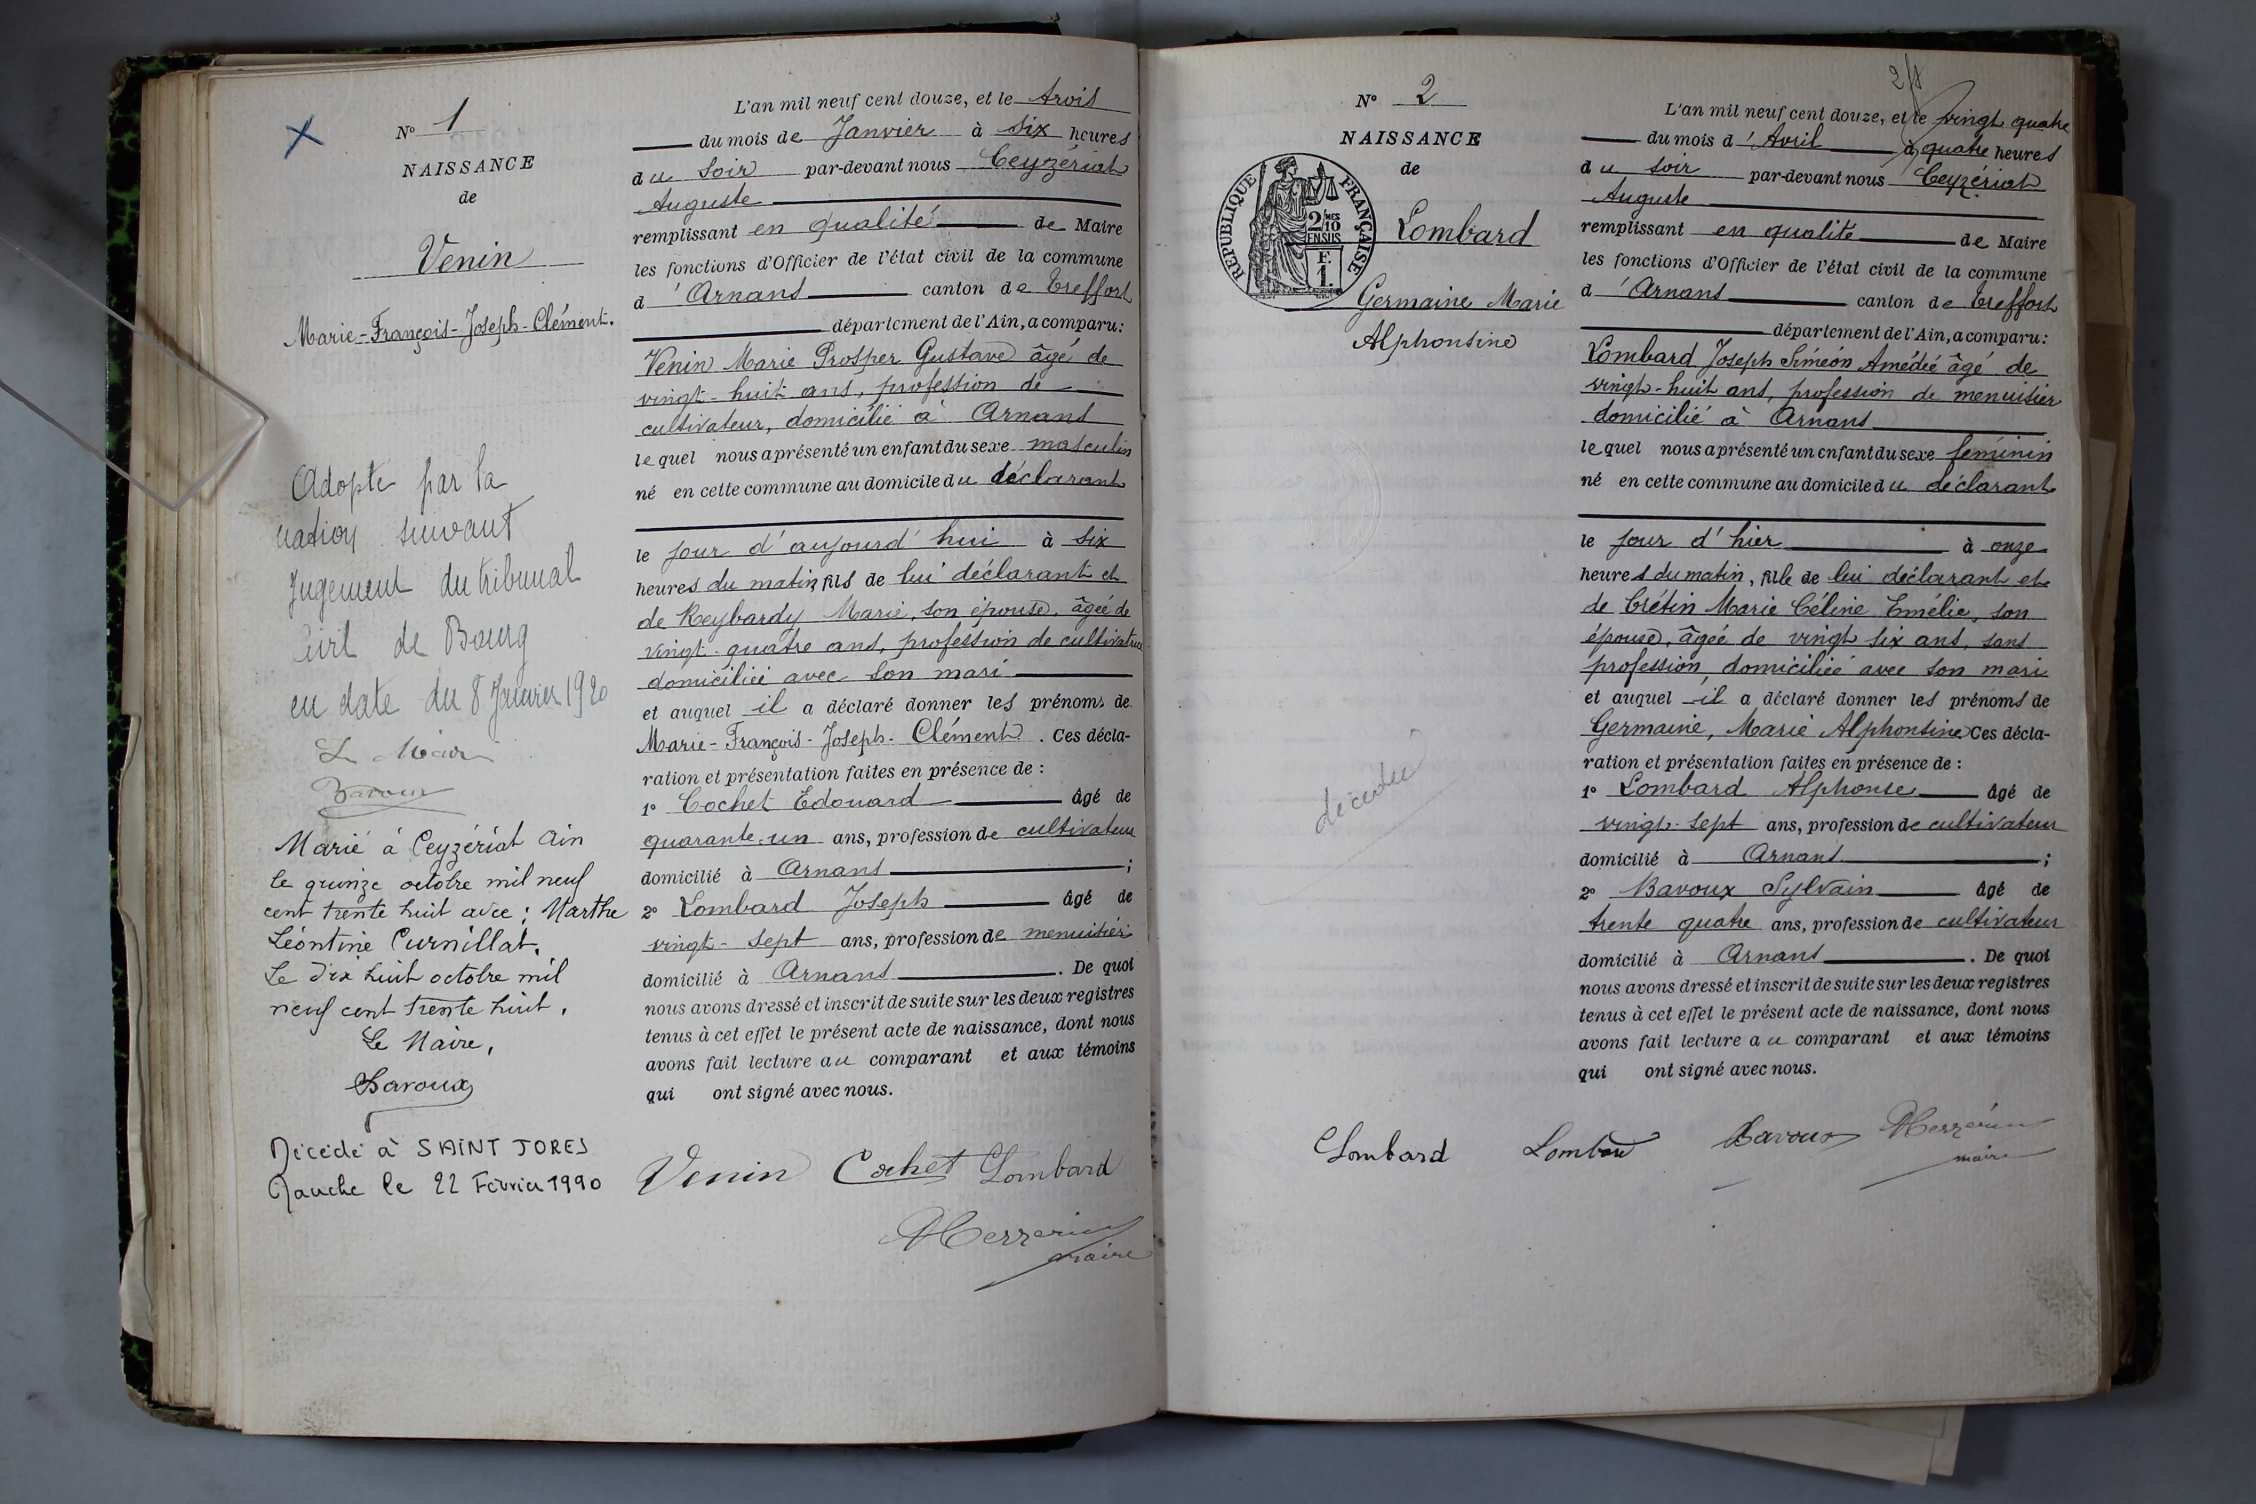 N° 1
NAISSANCE
de
Venin
Marie-François-Joseph-Clément.
Adopté par la
nation suivant
Jugement du tribunal
civil de Bourg
en date du 8 Janvier 1920
Le Maire
Bavoux
Marié à Ceyzériat Ain
le quinze octobre mil neuf
cent trente huit avec : Marthe
Léontine Curnillat.
Le dix huit octobre mil
neuf cent trente huit.
Le Maire,
Bavoux
Décédé à SAINT JORES
Manche le 22 Février 1990
L'an mil neuf cent douze, et le trois
du mois de Janvier à six heures
du soir par-devant nous Ceyzériat
Auguste
remplissant en qualité de Maire
les fonctions d'Officier de l'état civil de la commune
d'Arnans canton de Treffort
département de l'Ain, a comparu:
Venin Marie Prosper Gustave âgé de
vingt-huit ans, profession de
cultivateur, domicilié à Arnans
lequel nous a présenté un enfant du sexe masculin
né en cette commune au domicile du déclarant
le jour d'aujourd'hui à six
heures du matin, fils de lui déclarant et
de Reybardy Marie, son épouse, âgée de
vingt-quatre ans, profession de cultivatrice
domiciliée avec son mari
et auquel il a déclaré donner les prénoms de
Marie-François-Joseph-Clément. Ces décla-
ration et présentation faites en présence de :
1° Cochet Edouard âgé de
quarante-un ans, profession de cultivateur
domicilié à Arnans ;
2° Lombard Joseph âgé de
vingt-sept ans, profession de menuisier
domicilié à Arnans . De quoi
nous avons dressé et inscrit de suite sur les deux registres
tenus à cet effet le présent acte de naissance, dont nous
avons fait lecture au comparant et aux témoins
qui ont signé avec nous.
Venin Cochet Lombard
maire
N° 2
NAISSANCE
de
REPUBLIQUE FRANÇAISE
2/10
EN SUS
F.
1.
Lombard
Germaine Marie
Alphonsine
décédée
2/8
L'an mil neuf cent douze, et le vingt quatre
du mois d'Avril à quatre heures
du soir par-devant nous Ceyzériat
Auguste
remplissant en qualité de Maire
les fonctions d'Officier de l'état civil de la commune
d'Arnans canton de Treffort
département de l'Ain, a comparu:
Lombard Joseph Siméon Amédée âgé de
vingt-huit ans, profession de menuisier
domicilié à Arnans
lequel nous a présenté un enfant du sexe féminin
né en cette commune au domicile du déclarant
le jour d'hier à onze
heures du matin, fille de lui déclarant et
de Crétin Marie Céline Emélie, son
épouse, âgée de vingt six ans, sans
profession, domiciliée avec son mari
et auquel il a déclaré donner les prénoms de
Germaine, Marie Alphonsine Ces décla-
ration et présentation faites en présence de :
1° Lombard Alphonse âgé de
vingt-sept ans, profession de cultivateur
domicilié à Arnans ;
2° Bavoux Sylvain âgé de
trente quatre ans, profession de cultivateur
domicilié à Arnans . De quoi
nous avons dressé et inscrit de suite sur les deux registres
tenus à cet effet le présent acte de naissance, dont nous
avons fait lecture au comparant et aux témoins
qui ont signé avec nous.
Lombard Lombard Bavoux
maire